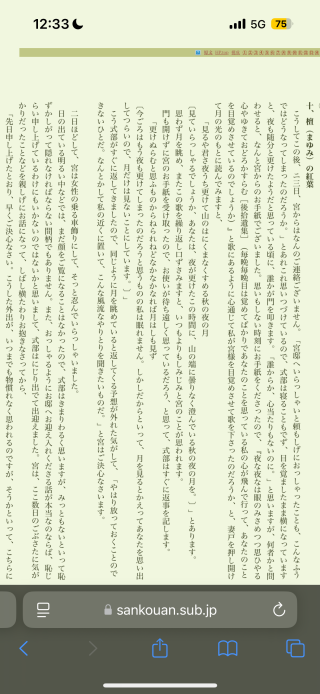 12:33
5G
75
十、檀（まゆみ）の紅葉
こうしてこの後、二三日、宮からはなんのご連絡もございません。「宮邸へいらっしゃいと頼もしげにおっしゃったことも、こんなふう
ではどうなってしまったのだろうか、」とあれこれ思いつづけているので、式部は寝ることもできず、目を覚ましたまま横になっています
と、夜も随分と更けたようだと思っている頃に、誰かが門を叩きます。「誰かしら、心当たりもないのに。」と思いますが、何者かと問
わせると、なんと宮からのお手紙でございました。思いもしない時刻にお手紙をくださったので、「夜な夜なは眼のみさめつつ思ひやる
心やゆきておどろかすらむ［後拾遺集］（毎晩毎晩目は覚めてばかりであなたのことを思っている私の心が飛んで行って、あなたのこと
を目覚めさせているのでしょうか）」と歌にあるように心通じて私が宮様を目覚めさせて歌を下さったのだろうか、と、妻戸を押し開け
て月の光のもとに読んでみますと、
「見るや君さ夜うち更けて山のはにくまなくすめる秋の夜の月
［見ていらっしゃるでしょうか、あなたは。夜が更けたこの時間に、山の端に曇りなく澄んでいる秋の夜の月を。］」とあります。
思わず月を眺め、またこの歌を繰り返し口ずさみますと、いつもよりもしみじみと宮のことが思われます。
門も開けずに宮のお手紙を受け取ったので、お使いが待ち遠しく思っているだろう、と思って、式部はすぐに返事を記します。
「更けぬらむと思ふものからねられねどなかなかなれば月はしも見ず
［今ごろはもう夜も更けてしまったのだろうと思うものの私は眠れません。しかしだからといって、月を見るとかえってあなたを思い出
してつらいので、月だけは見ないことにしています。］」
こう式部がすぐに返してきましたので、同じように月を眺めていると返してくる予想が外れた気がして、「やはり放っておくことので
きないひとだ。なんとかして私の近くに置いて、こんな風流なやりとりを聞きたいものだ。」と宮はご決心なさいます。
二日ほどして、宮は女性の乗る車飾りにして、そっと忍んでいらっしゃいました。
日の出ている明るい中などでは、まだ顔をご覧になることはなかったので、式部はきまりわるく思いますが、みっともないといって恥
ずかしがって隠れなければならない間柄でもありません。また、おっしゃるようにお邸へお迎え入れくださる話が本当なのならば、恥じ
らい申し上げているわけにもいかないのではないかと思いまして、式部はにじり出でて出迎えました。宮は、ここ数日のごぶさたに気が
かりだったことなどを親しげにお話になって、しばし横たわりお抱きなさってから、
「先日申し上げたとおり、早くご決心なさい。こうした外出が、いつまでも物慣れなく思われるのですが、そうかといって、こちらに
sankouan.sub.jp